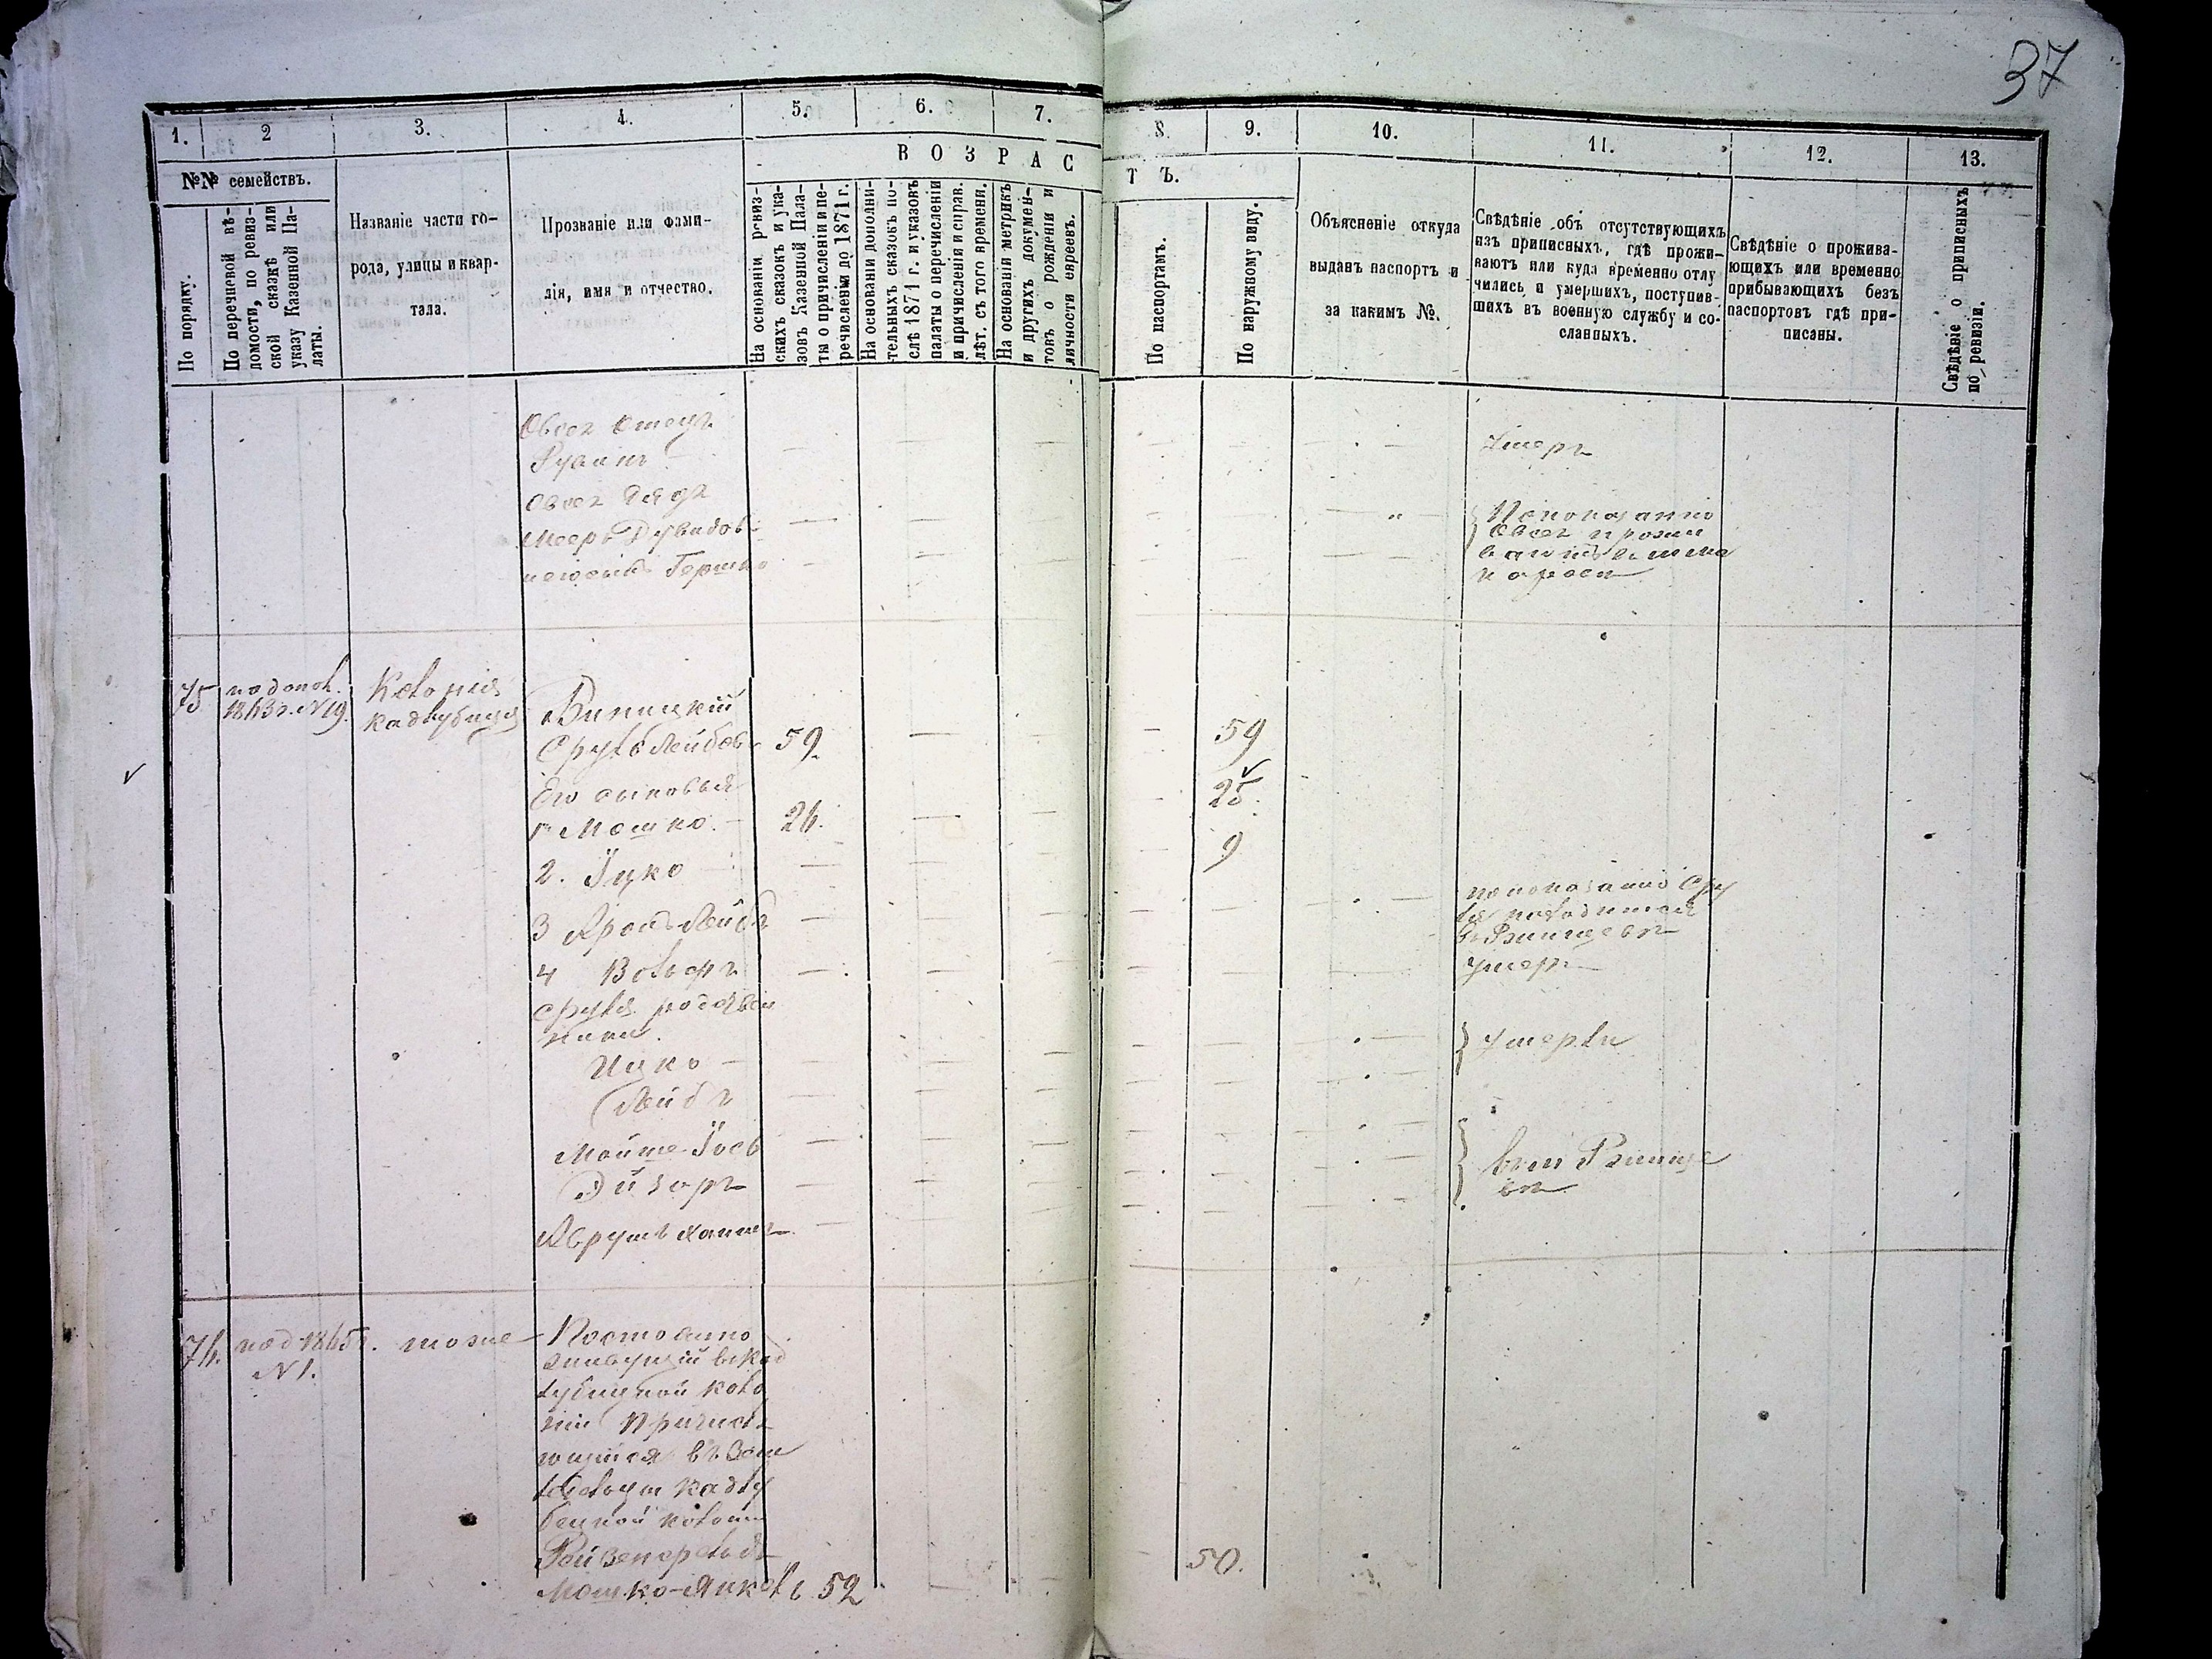 37
1.
2
3.
4.
5.
6.
7.
8
9.
10.
11.
12.
13.
№№ семействъ.
ВОЗРАС
ТЪ.
По порядку.
По перечневой вѣ-
домости, по ревиз-
ской сказкѣ или
указу Казенной Па-
латы.
Названіе части го-
рода, улицы и квар-
тала.
Прозваніе или фами-
лія, имя и отчество.
На основаніи ревиз-
скихъ сказокъ и ука-
зовъ Казенной Пала-
ты о причисленіи и пе-
речисленію до 1871 г.
На основаніи дополни-
тельныхъ сказокъ по-
слѣ 1871 г. и указовъ
палаты о перечисленіи
и причисленія и справ.
лѣт. съ того времени.
На основаніи метрикъ
и другихъ докумен-
товъ о рожденіи и
личности евреевъ.
По паспортамъ.
По наружному виду.
Объясненіе откуда
выданъ паспортъ и
за какимъ №.
Свѣдѣніе объ отсутствующихъ
изъ приписныхъ, гдѣ прожи-
ваютъ или куда временно отлу
чились и умершихъ, поступив-
шихъ въ военную службу и со-
сланныхъ.
Свѣдѣніе о прожива-
ющихъ или временно
прибывающихъ безъ
паспортовъ гдѣ при-
писаны.
Свѣдѣніе о приписныхъ
по ревизіи.
Овсея Отецъ
Рувинъ
Умеръ
Овсея дядя
Мееръ
Гершко
По показанію
Овсея прожи
ваютъ
75
Колонія
Виницкій
Сруль Лейбов
59.
59
Его сыновья
1. Мошко.
26.
25.
2. Іцко
9
3 Аронъ-Лейбъ
по показанію Сру
ля находится
4 Вольфъ
умеръ
Сруля родствен
ники.
Ицко
Умерли
Лейбъ
Мойше-Іось
Эйзоръ
Аврумъ Хаимъ
76.
№ 1.
тоже
Постоянно
живущій въ Кад
лубицкой коло
ніи
Мошко-Янкель
52
50.